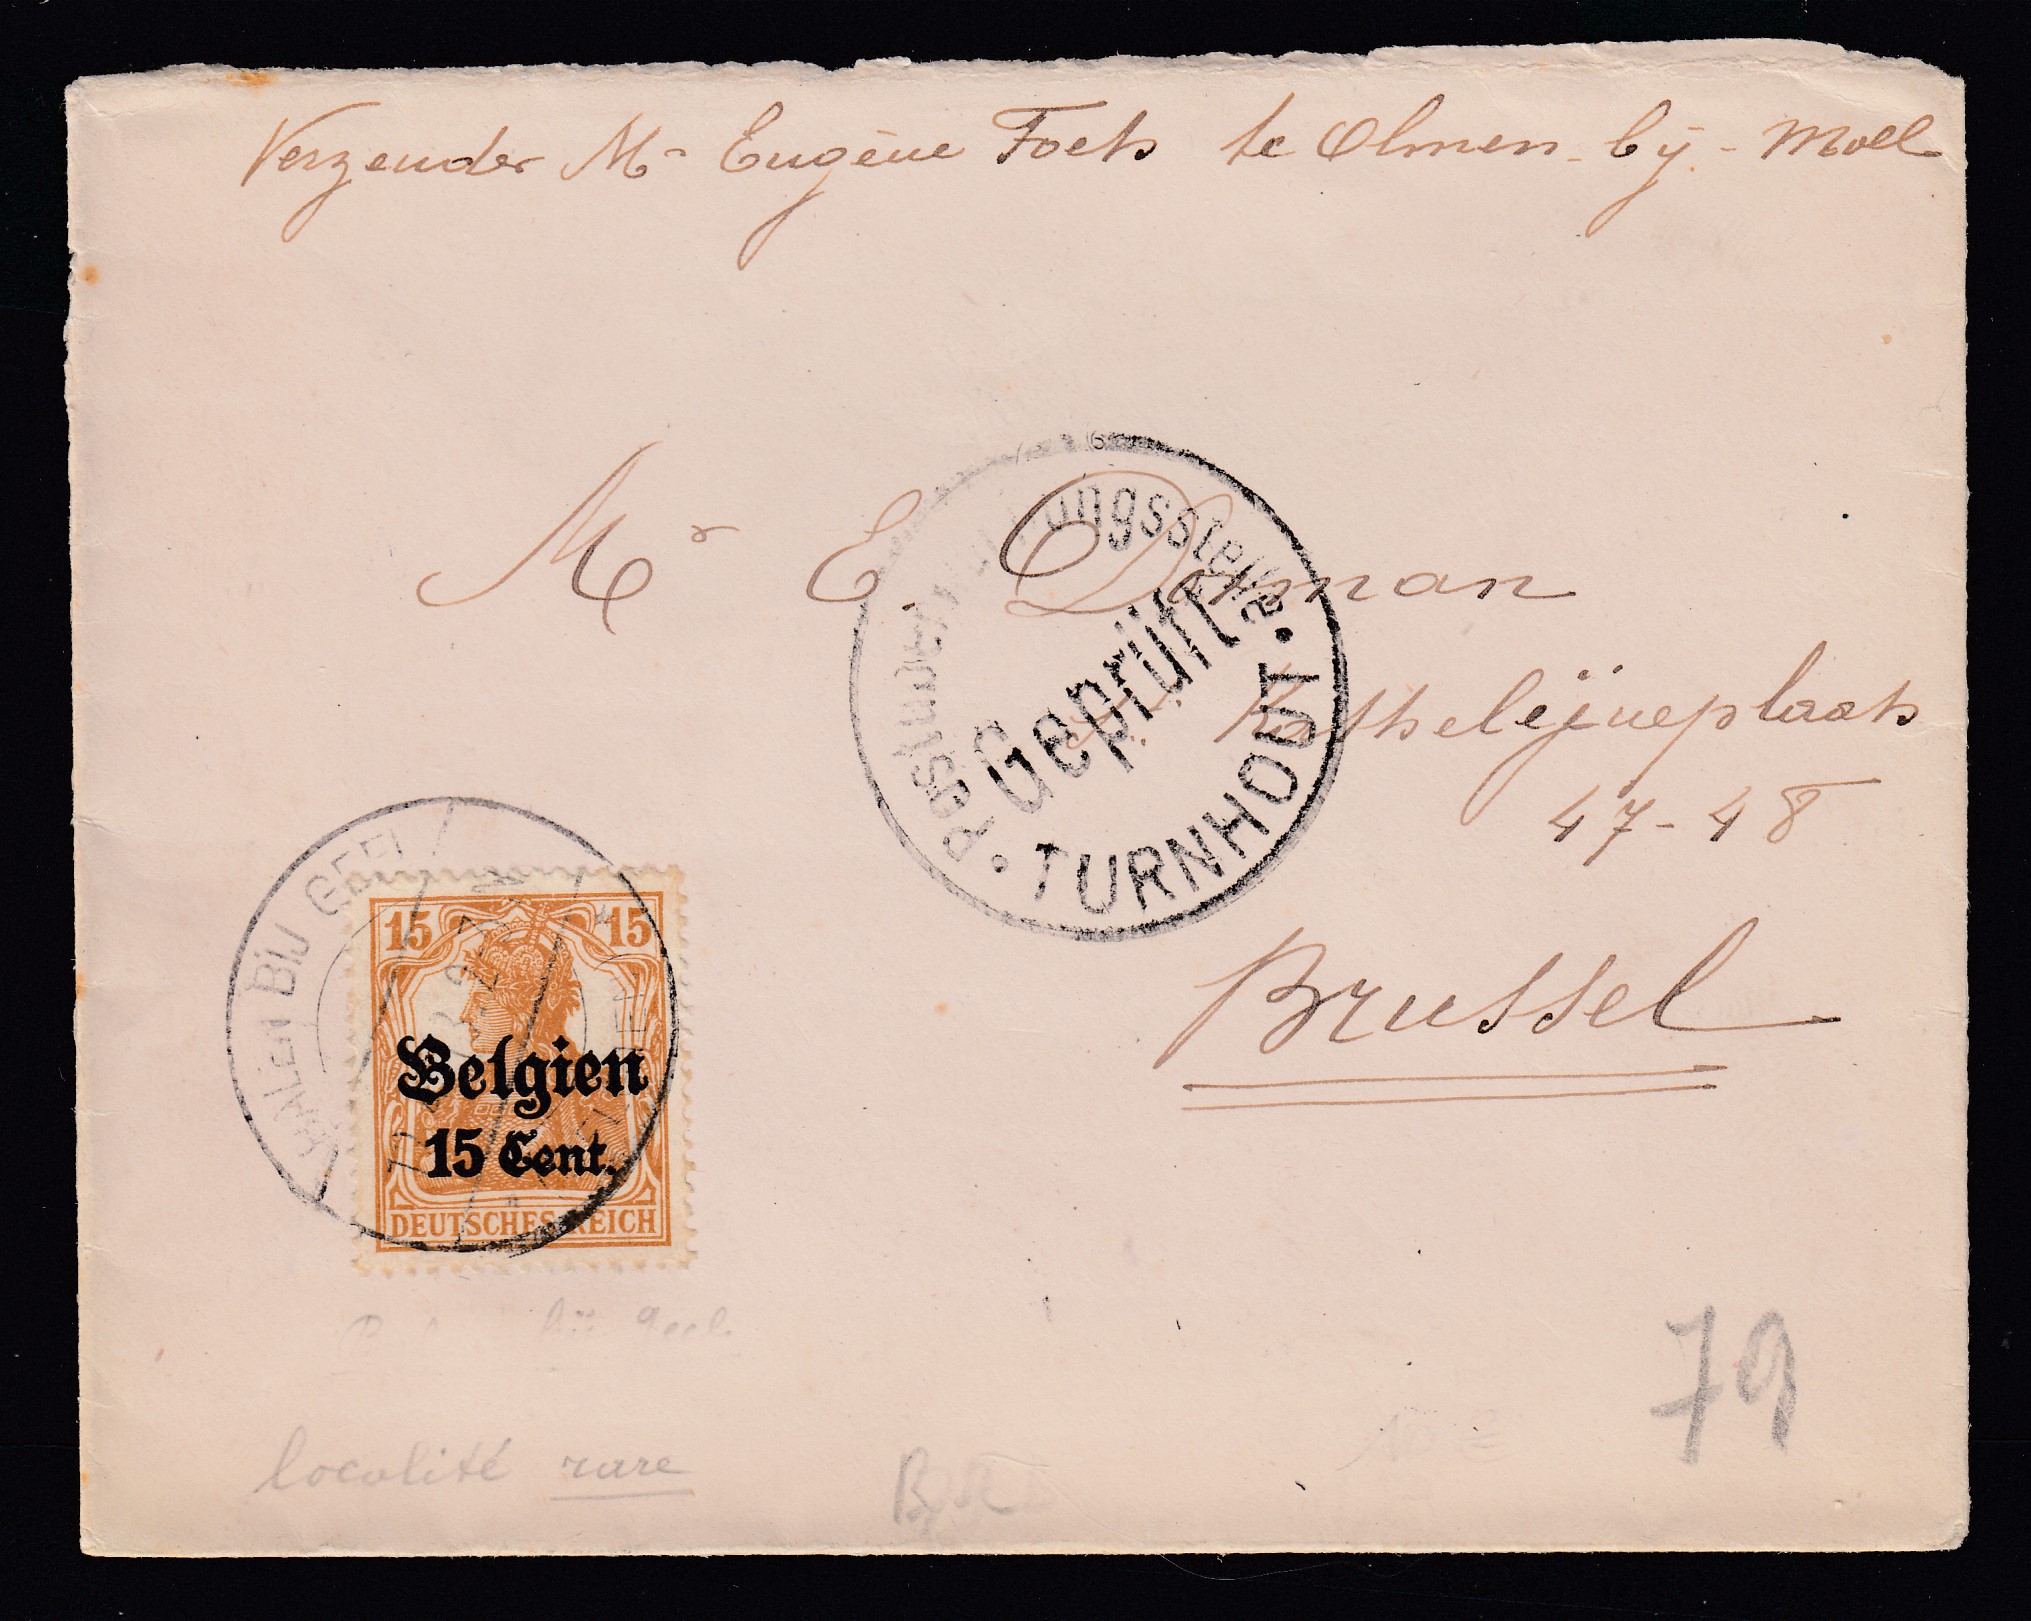 Verzender Mr Eugène Foets te Olmen - bij - Moll
Mr E. Dorman
Kathelijneplaats
47-48
Brussel
Postüberwachungsstelle
Geprüft
TURNHOUT
BIJ GEEL
15 15
Belgien
15 Cent.
DEUTSCHES REICH
bij Geel
localité rare
79